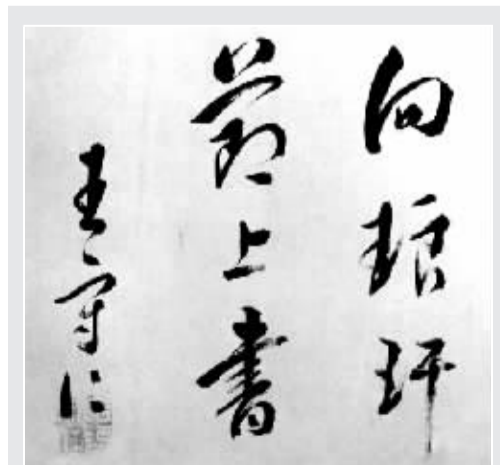 向琅玕
節上書
王守仁